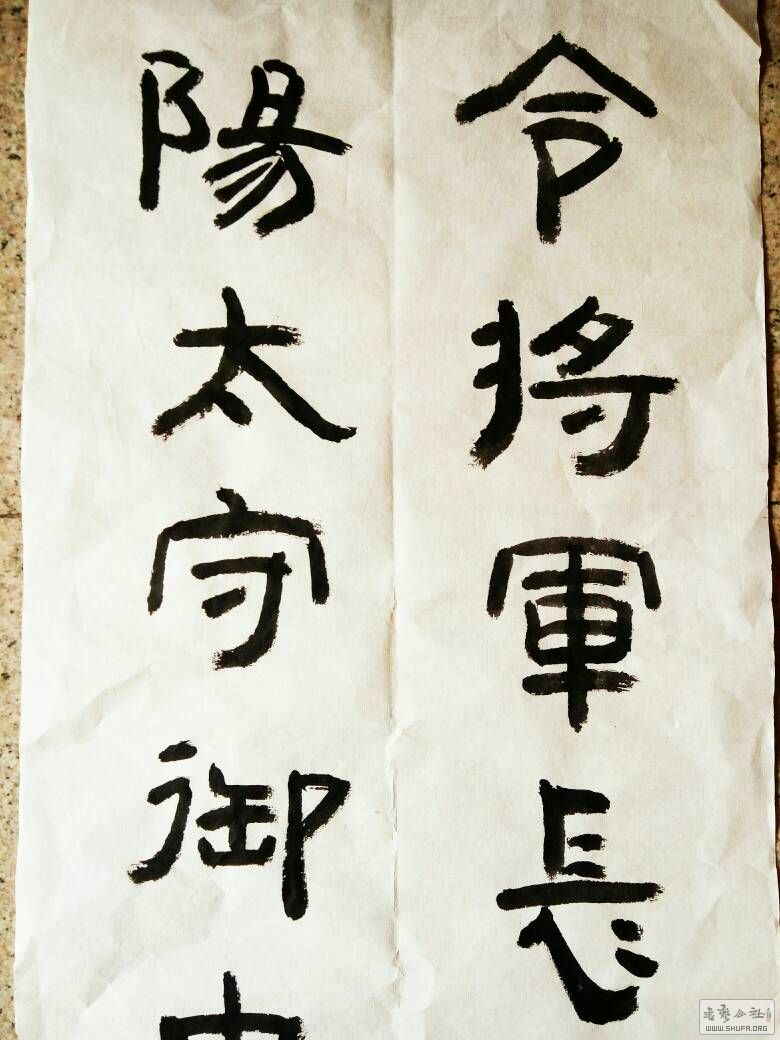 令將軍長
陽太守御
WWW.SHUFA.ORG